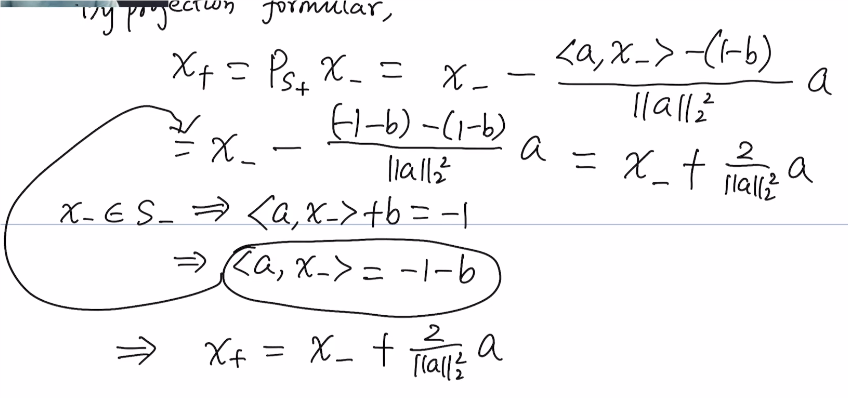 By projection formular,
x₊ = P_{S₊} x₋ = x₋ − (<a, x₋> −(1−b))/(||a||₂²) a
= x₋ − ((−1−b) −(1−b))/(||a||₂²) a = x₋ + 2/(||a||₂²) a
x₋ ∈ S₋ ⇒ <a, x₋> + b = −1
⇒ <a, x₋> = −1−b
⇒ x₊ = x₋ + 2/(||a||₂²) a